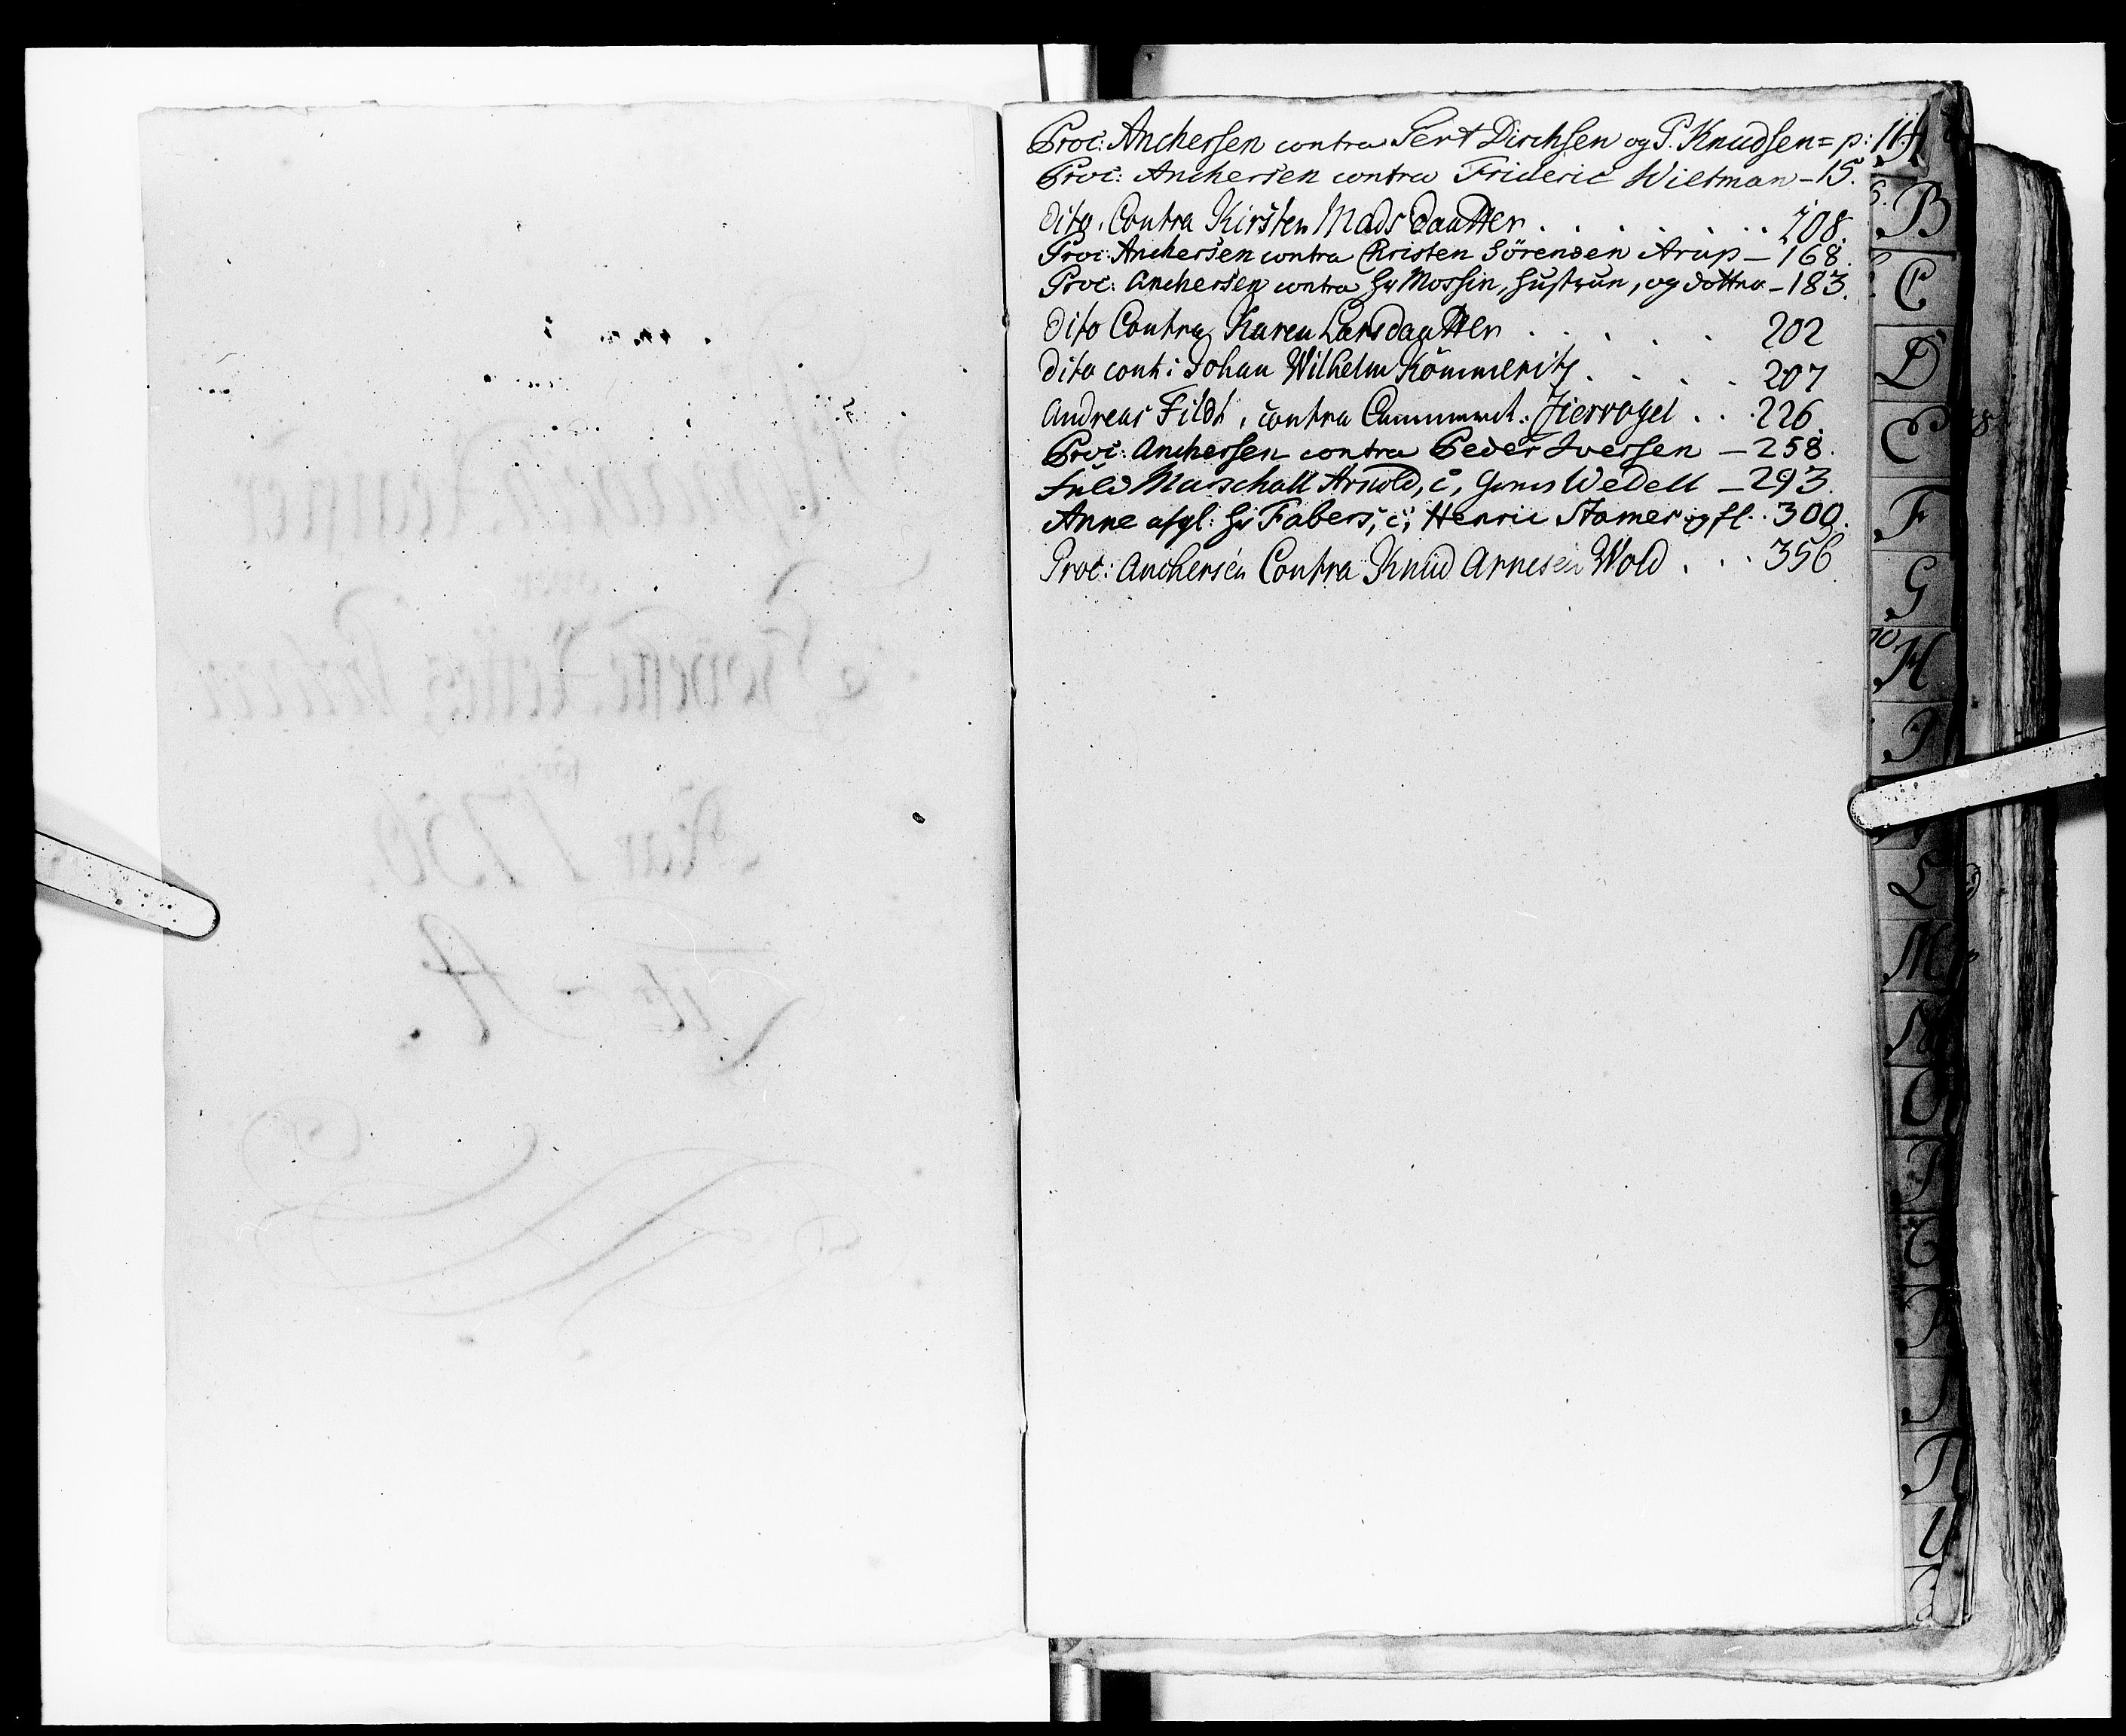 Proc: Anchersen contra Gert Dirchsen og P. Knudsen = p: 11.
Proc: Anchersen contra Frideric Wiltman - 15.
dito, Contra Kirsten Mads daatter . . . . . . . 108.
Proc: Anchersen contra Christen Sörensen Arup - 168.
Proc: Anchersen contra Hr Mossin, Hustrun, og dottra - 183.
dito Contra Karen Larsdaatter . . . . . 202
dito cont: Johan Wilhelm Kömmeritz . . . . 207
Andreas Fildt, contra Cammerrt: Jiervogel . . . 226.
Proc: Anchersen contra Peder Iversen - 258.
Marschall Arnold, c, Wedell - 293.
Anne afgl: Hr Fabers, c, Henric Stamer og fl. . 300.
Proc: Anchersen Contra Knud Arnesen Wold . . . 356
A
B
C
D
E
F
G
H
I
L
M
N
O
P
U